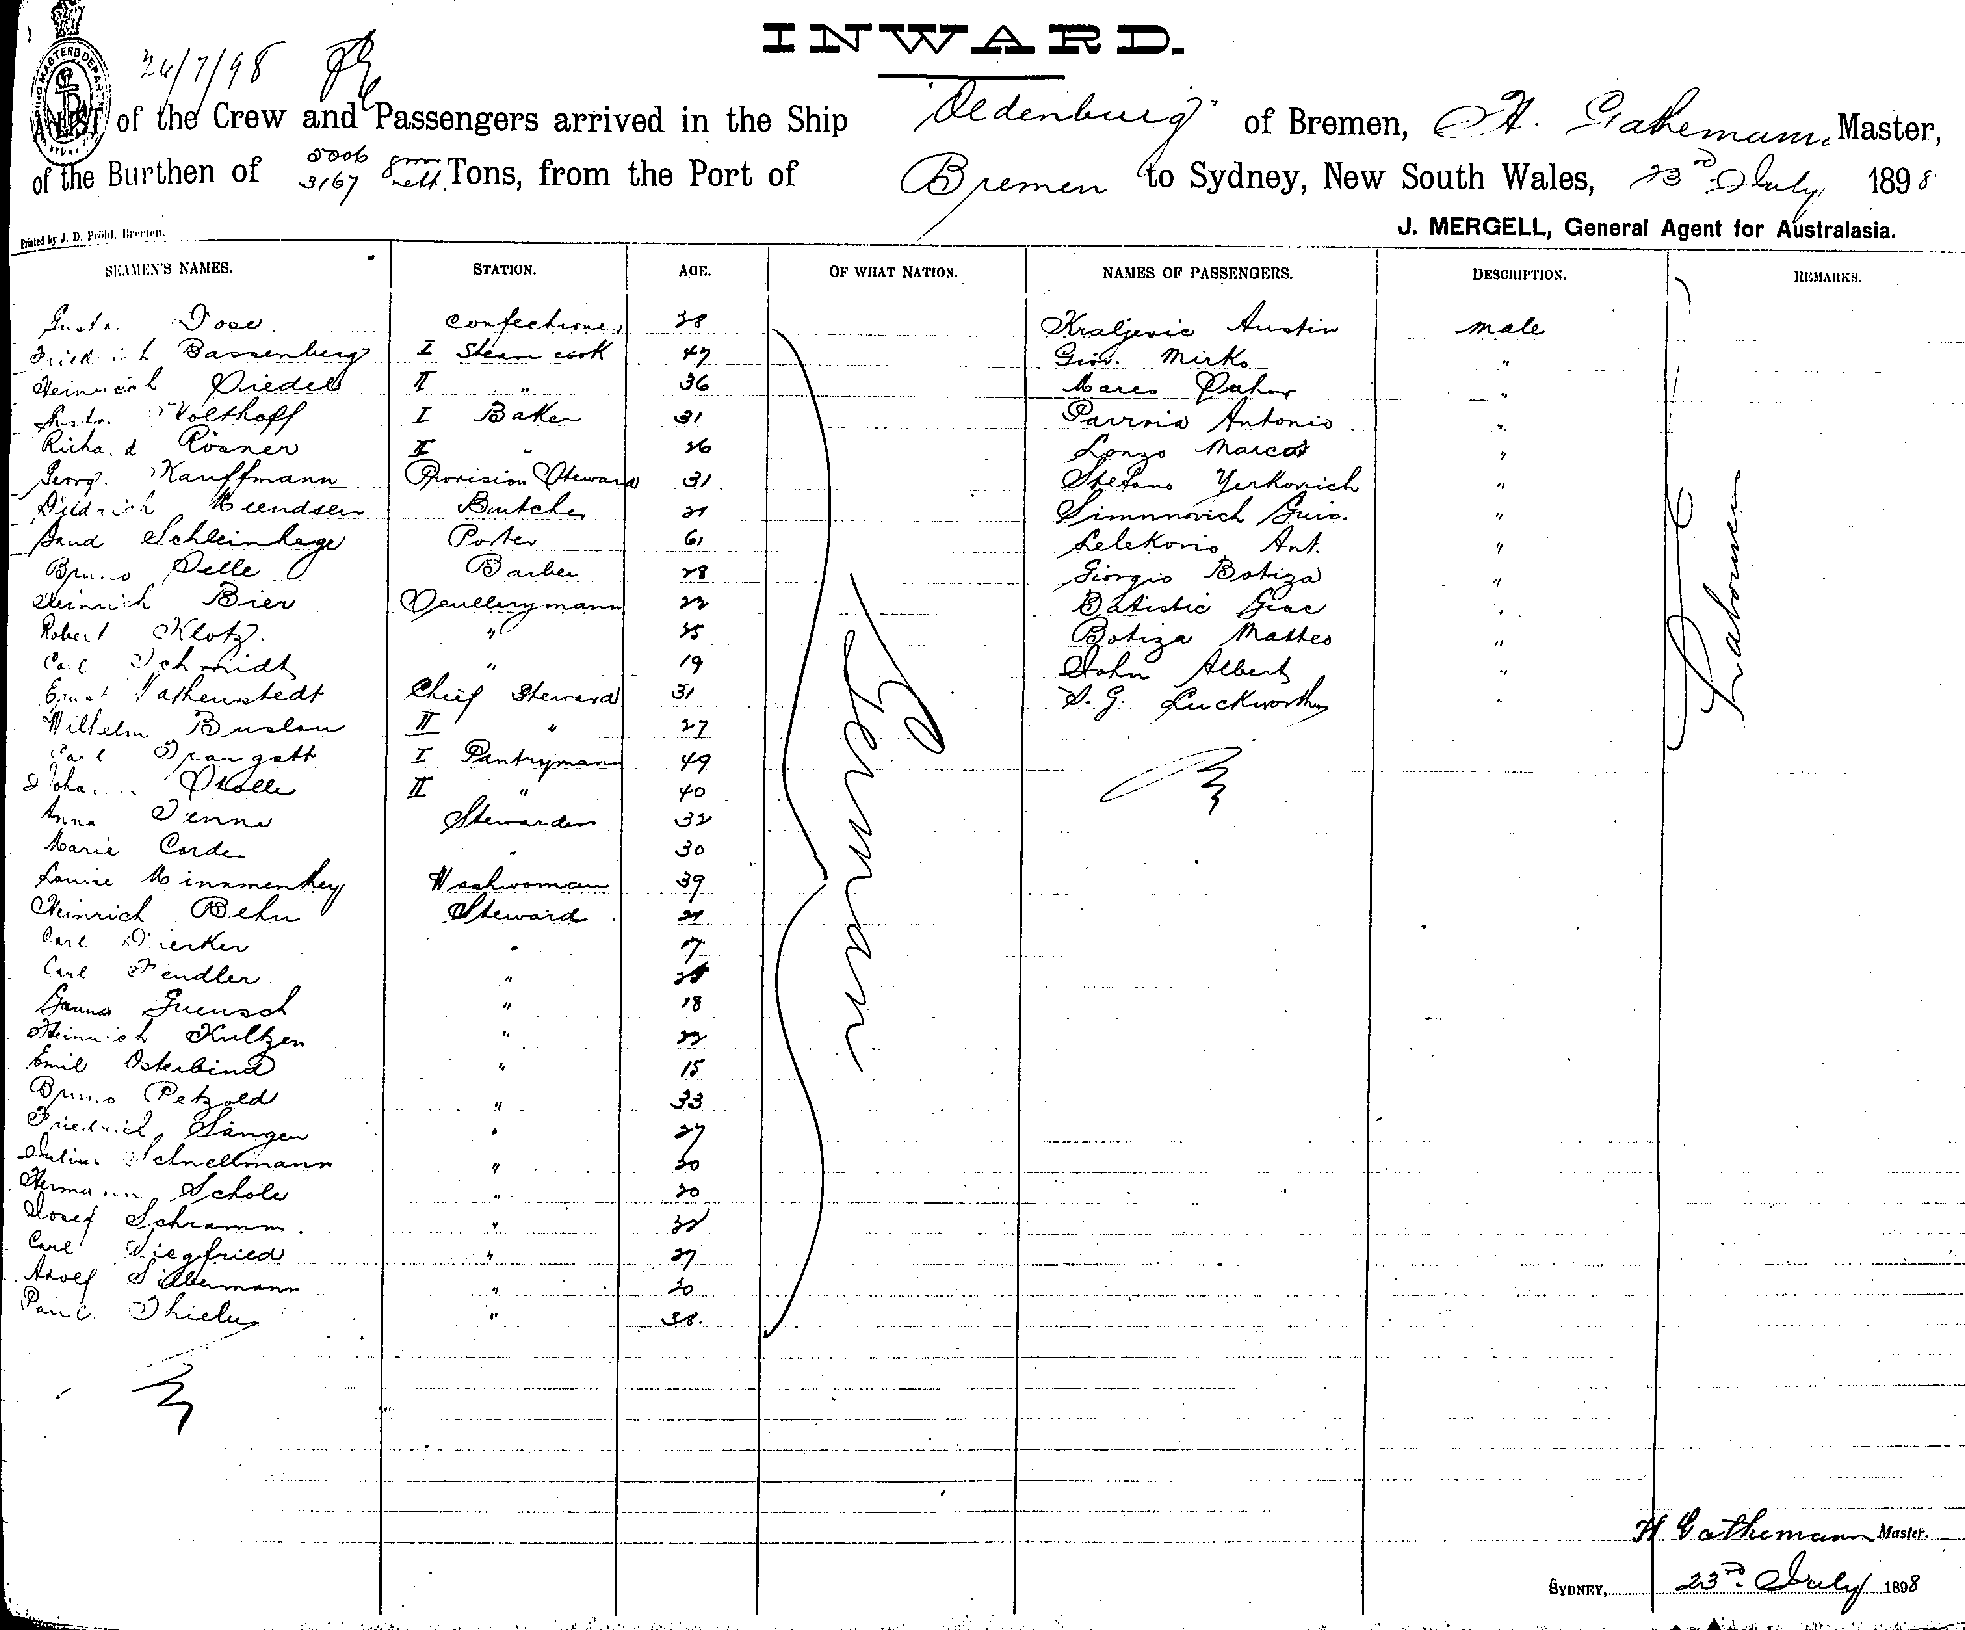 INWARD.
26/7/98
of the Crew and Passengers arrived in the Ship "Oldenburg" of Bremen, H. Gathemann Master,
of the Burthen of 5006 3167 nett. Tons, from the Port of Bremen to Sydney, New South Wales, 23rd July 1898
J. MERGELL, General Agent for Australasia.
Printed by J. D. Pröhl, Bremen.
SEAMEN'S NAMES. STATION. AGE. OF WHAT NATION. NAMES OF PASSENGERS. DESCRIPTION. REMARKS.
Gustav Dose. Confectioner 28 Kraljevic Austin male
Friedrich Bassenberg I Steam cook 47 Giov. Mirko "
Heinrich Riedel II " 36 "
Gustav Wolthoff I Baker 31 Antonio "
Richard Rösner II " 26 Lonzo Marcos "
Georg Kauffmann Provision Steward 31 Stefano Yerkovich "
Diedrich Butcher 21 "
Schleinhege Porter 61 Lelekovic Ant. "
Bruno Pelle Barber 28 Giorgio Botiza "
Heinrich Bier 22 Batistic "
Robert Klotz. " 25 Botiza Matteo "
Carl Schmidt " 19 John Albert "
Ernst Chief Steward 31 S. G. Luckworthy "
Wilhelm Buslau II " 27
Carl I Pantrymann 49
Johann II " 40
Anna Stewardess 32
Marie Cordes " 30
Louise Washwoman 39
Heinrich Behn Steward 21
Carl Dierker "
Carl Fendler "
" 18
Heinrich Kultzen " 22
Emil Osterbind " 15
Bruno Petzold " 33
Friedrich Sänger " 27
Julius Schnellmann " 20
Hermann Schole " 20
Josef Schramm. " 32
Carl Siegfried " 27
Adolf Silbermann " 20
Paul Thiele " 38.
German
Labourer
H Gathemann Master.
SYDNEY, 23rd July 1898